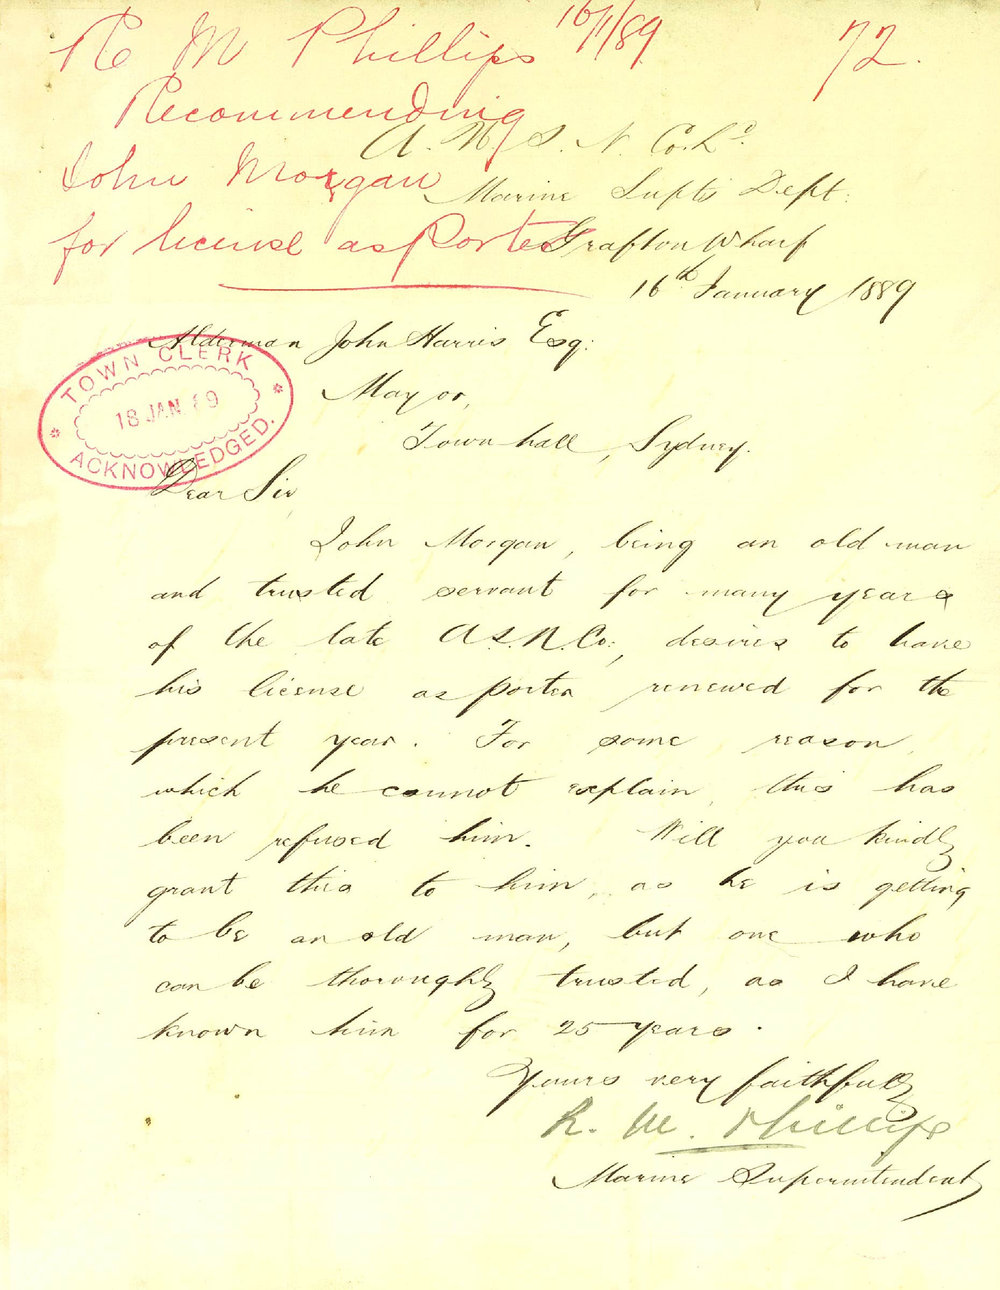 R M Phillips 16/1/89 72.
Recommending
John Morgan
for license as Porter
A. M. S. N. Co. Ld.
Marine Supts Dept.
Grafton Wharf
16th January 1889
Alderman John Harris Esq:
Mayor,
Town hall, Sydney.
TOWN CLERK
18 JAN. 89
ACKNOWLEDGED.
Dear Sir
John Morgan, being an old man
and trusted servant for many years
of the late A.S.N.Co:, desires to have
his license as porter renewed for the
present year. For some reason,
which he cannot explain, this has
been refused him. Will you kindly
grant this to him, as he is getting
to be an old man, but one who
can be thoroughly trusted, as I have
known him for 25 years.
Yours very faithfully
R. M. Phillips
Marine Superintendent